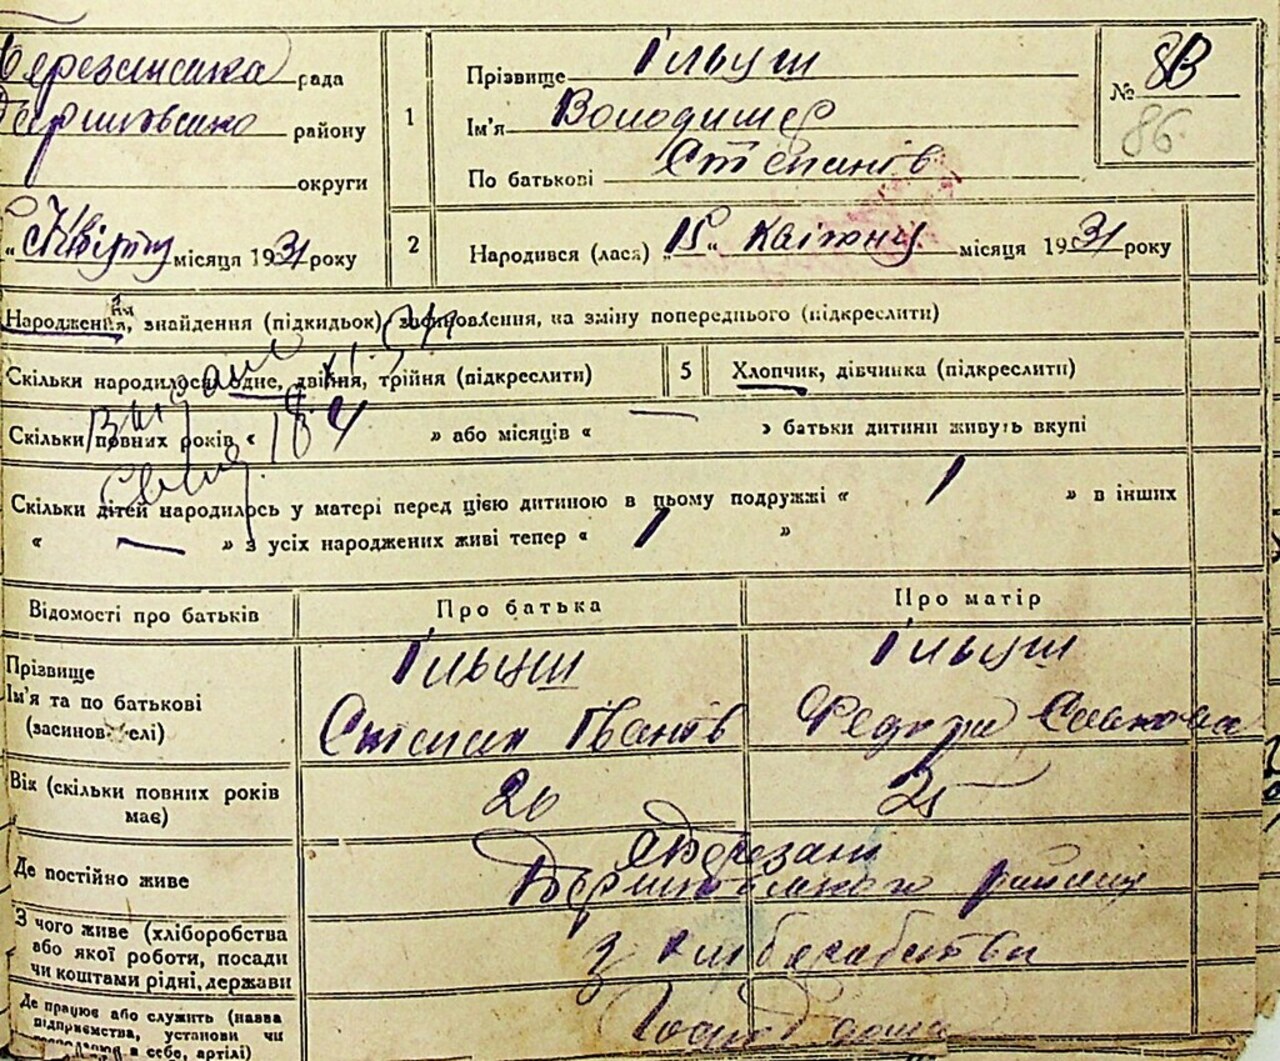 Березанська рада
району
округи
місяця 1931 року
1
Прізвище Гільуш
Ім'я Володимер
По батькові Степанів
№ 83
86.
2
Народився (лась) „15" квітня місяця 1931 року
Народження, знайдення (підкидьок) засиновлення, на зміну попереднього (підкреслити)
Скільки народилось: одне, двійня, трійня (підкреслити)
5
Хлопчик, дівчинка (підкреслити)
Скільки повних років « 4 » або місяців « — » батьки дитини живуть вкупі
Скільки дітей народилось у матері перед цією дитиною в цьому подружжі « 1 » в інших
« — » з усіх народжених живі тепер « 1 »
Відомості про батьків
Про батька
Про матір
Прізвище
Ім'я та по батькові
(засиновителі)
Гільуш
Степан Іванів
Гільуш
Федора Савкова
Вік (скільки повних років
має)
26
25
Де постійно живе
Березані
району
З чого живе (хліборобства
або якої роботи, посади
чи коштами рідні, держави
з хліборобства
Де працює або служить (назва
підприємства, установи чи
в себе, артілі)